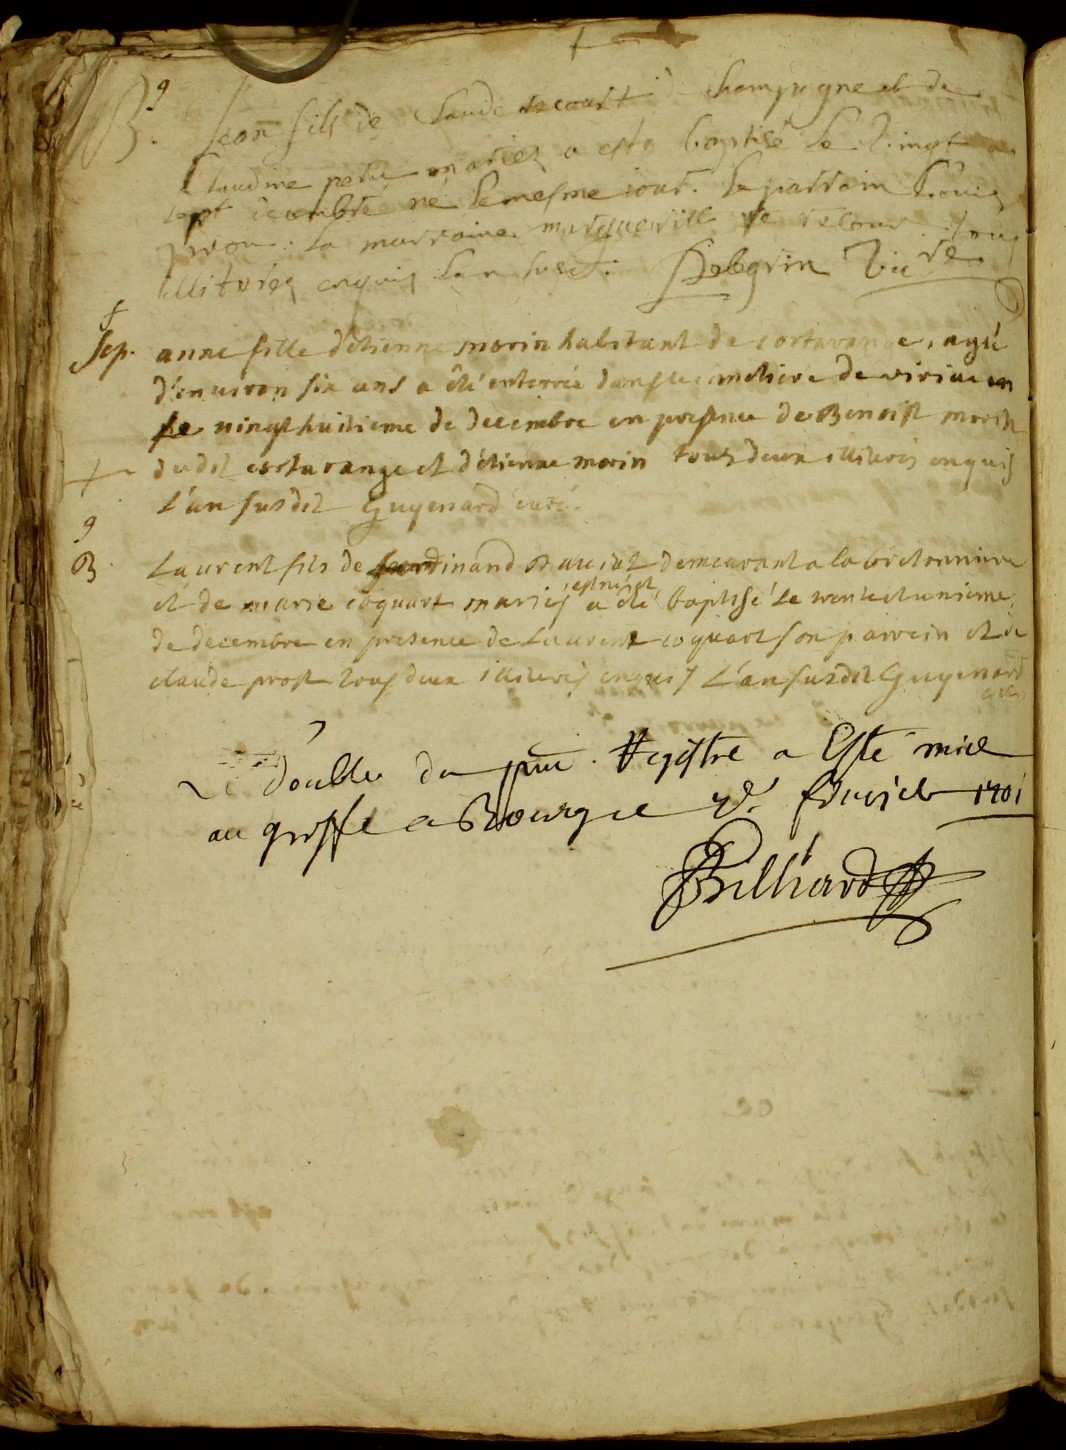 9
B. Jean fils de Claude recourt de Champagne et de
Claudine petit mariez a esté baptisé le vingt
sept decembre né le mesme jour. le parrain Louis
la marraine tous
illiterez enquis l'an susd. Pelegrin Vic re
+
Sep. anne fille d'etienne morin habitant de cortavange, agée
d'environ six ans a êté enterrée dans le cimetiere de viriac en
le vingt huitieme de decembre en presence de Benoist morin
dudit cortavange et d'etienne morin tous deux illiteris enquis
L'an susdit Guyenard curé.
9
B. Laurent fils de ferdinand demeurant a la bretonniere
et de marie coquart mariés est né et a êté baptisé Le trente et unieme
de decembre en presence de Laurent coquart son parrein et de
claude prost tous deux illiteris enquis L'an susdit Guyenard
curé
Le double du pnt Registre a Esté mis
au greffe a Bourg le 7e. fevrier 1701
Billiard